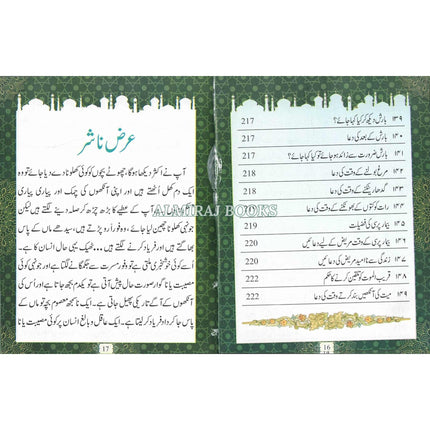 ۱۳۹ بارش دیکھ کر کیا کہا جائے؟ 217
۱۴۰ بارش کے بعد کی دعا 217
۱۴۱ بارش ضرورت سے زائد ہو جائے تو کیا کہا جائے؟ 217
۱۴۲ مرغ بولنے کے وقت کی دعا 218
۱۴۳ گدھا رینکنے کے وقت کی دعا 218
۱۴۴ رات کو کتوں کے بھونکنے کے وقت کی دعا 218
۱۴۵ بیمار پرسی کی فضیلت 219
۱۴۶ بیمار پرسی کے وقت مریض کے لیے دعائیں 220
۱۴۷ زندگی سے ناامید مریض کی دعائیں 221
۱۴۸ قریب الموت کو تلقین کرنے کا حکم 222
۱۴۹ میت کی آنکھیں بند کرتے وقت کی دعا 222
16
عرض ناشر
آپ نے اکثر دیکھا ہوگا، چھوٹے بچوں کو کوئی کھلونا دے دیا جائے تو وہ
ایک دم کھل اٹھتے ہیں اور اپنی آنکھوں کی چمک اور پیاری پیاری
آپ کے عطیے کا بڑھ چڑھ کر صلہ دینے لگتے ہیں لیکن
جونہی کوئی ان سے کھلونا چھین لیا جائے، وہ فوراً رو پڑتے ہیں، سیدھے ماں کے پاس
بھاگتے ہیں اور فریاد کرنے لگتے ہیں... ٹھیک یہی حال انسان کا ہے۔
اُسے کوئی خوشخبری ملتی ہے تو وہ فورِ مسرت سے جگمگانے لگتا ہے اور جونہی کوئی
مصیبت یا ناگوار صورت حال پیش آتی ہے تو یکدم بجھ جاتا ہے اور اُس کی
آنکھوں کے آگے تاریکی پھیل جاتی ہے۔ ایک ناسمجھ معصوم بچہ تو ماں کے
پاس جا کر داد فریاد کر لیتا ہے۔ ایک عاقل و بالغ انسان پر کوئی مصیبت
17
ALMIRAJ BOOKS